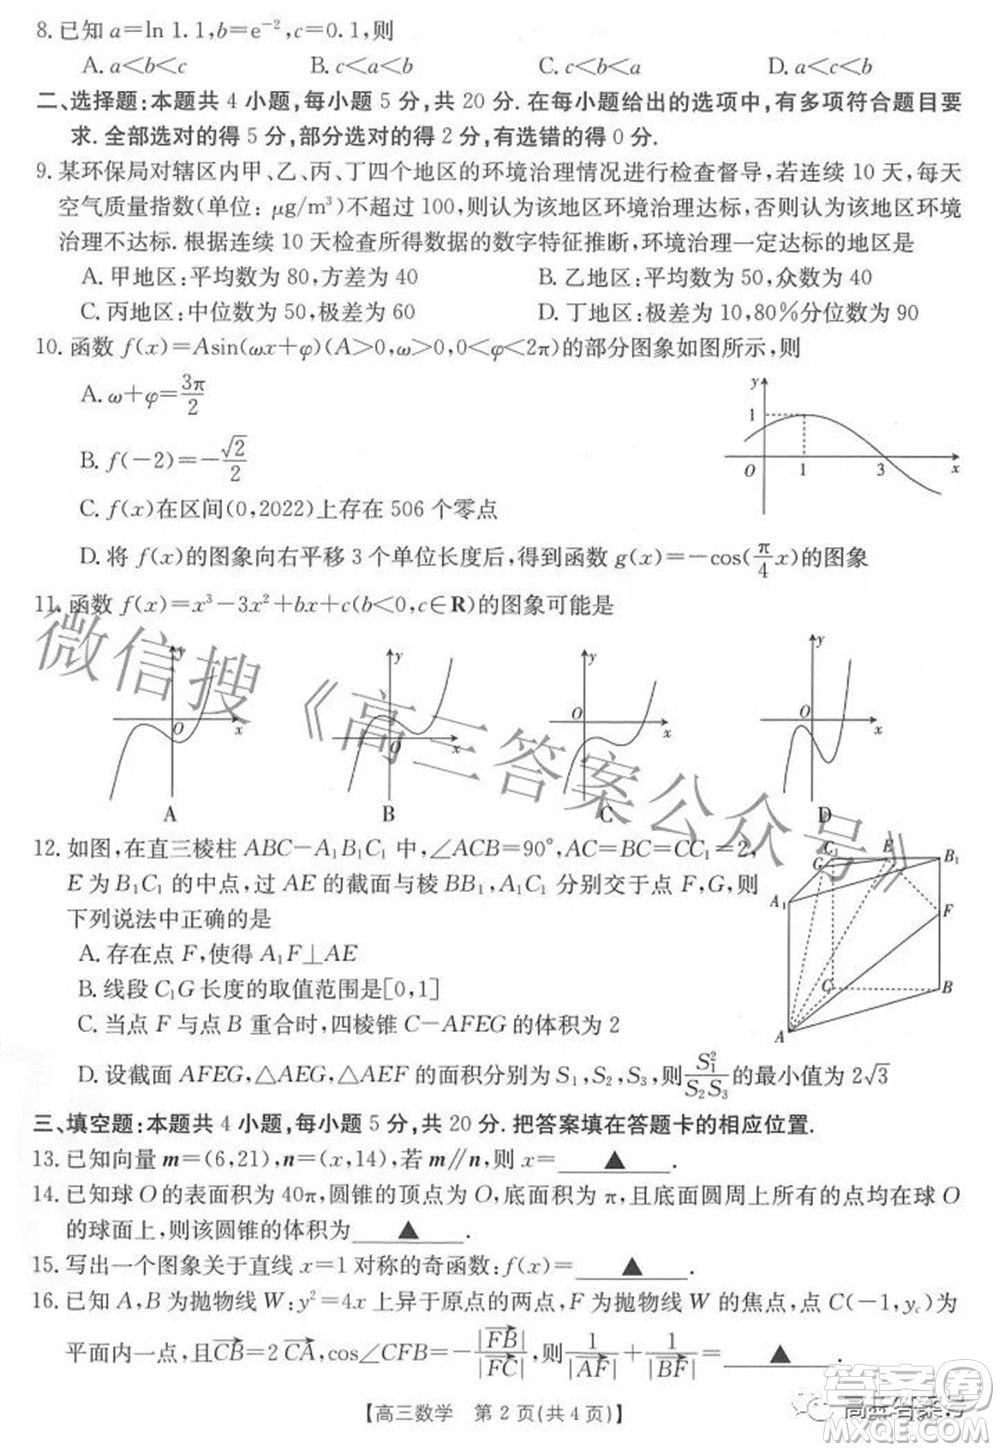 8. 已知 a=ln 1.1, b=e⁻², c=0.1, 则
A. a<b<c B. c<a<b C. c<b<a D. a<c<b
二、选择题:本题共 4 小题,每小题 5 分,共 20 分. 在每小题给出的选项中,有多项符合题目要
求. 全部选对的得 5 分,部分选对的得 2 分,有选错的得 0 分.
9. 某环保局对辖区内甲、乙、丙、丁四个地区的环境治理情况进行检查督导,若连续 10 天,每天
空气质量指数(单位: μg/m³)不超过 100,则认为该地区环境治理达标,否则认为该地区环境
治理不达标. 根据连续 10 天检查所得数据的数字特征推断,环境治理一定达标的地区是
A. 甲地区:平均数为 80,方差为 40 B. 乙地区:平均数为 50,众数为 40
C. 丙地区:中位数为 50,极差为 60 D. 丁地区:极差为 10,80%分位数为 90
10. 函数 f(x)=Asin(ωx+φ)(A>0,ω>0,0<φ<2π)的部分图象如图所示,则
A. ω+φ=3π/2
B. f(−2)=−√2/2
C. f(x)在区间(0,2022)上存在 506 个零点
D. 将 f(x)的图象向右平移 3 个单位长度后,得到函数 g(x)=−cos(π/4 x)的图象
y 1 O 1 3 x
11. 函数 f(x)=x³−3x²+bx+c(b<0,c∈R)的图象可能是
y O x y O x y O x y O x
A B C D
12. 如图,在直三棱柱 ABC−A₁B₁C₁ 中,∠ACB=90°,AC=BC=CC₁=2,
E 为 B₁C₁ 的中点,过 AE 的截面与棱 BB₁,A₁C₁ 分别交于点 F,G,则
下列说法中正确的是
A. 存在点 F,使得 A₁F⊥AE
B. 线段 C₁G 长度的取值范围是[0,1]
C. 当点 F 与点 B 重合时,四棱锥 C−AFEG 的体积为 2
D. 设截面 AFEG,△AEG,△AEF 的面积分别为 S₁,S₂,S₃,则 S₁²/S₂S₃ 的最小值为 2√3
C₁ E B₁ G A₁ F C B A
三、填空题:本题共 4 小题,每小题 5 分,共 20 分. 把答案填在答题卡的相应位置.
13. 已知向量 m=(6,21),n=(x,14),若 m∥n,则 x= ▲ .
14. 已知球 O 的表面积为 40π,圆锥的顶点为 O,底面积为 π,且底面圆周上所有的点均在球 O
的球面上,则该圆锥的体积为 ▲ .
15. 写出一个图象关于直线 x=1 对称的奇函数:f(x)= ▲ .
16. 已知 A,B 为抛物线 W:y²=4x 上异于原点的两点,F 为抛物线 W 的焦点,点 C(−1,y_c)为
平面内一点,且 CB→=2 CA→,cos∠CFB=−|FB→|/|FC→|,则 1/|AF→|+1/|BF→|= ▲ .
【高三数学 第 2 页(共 4 页)】
微信搜《高三答案公众号》
高三答案号